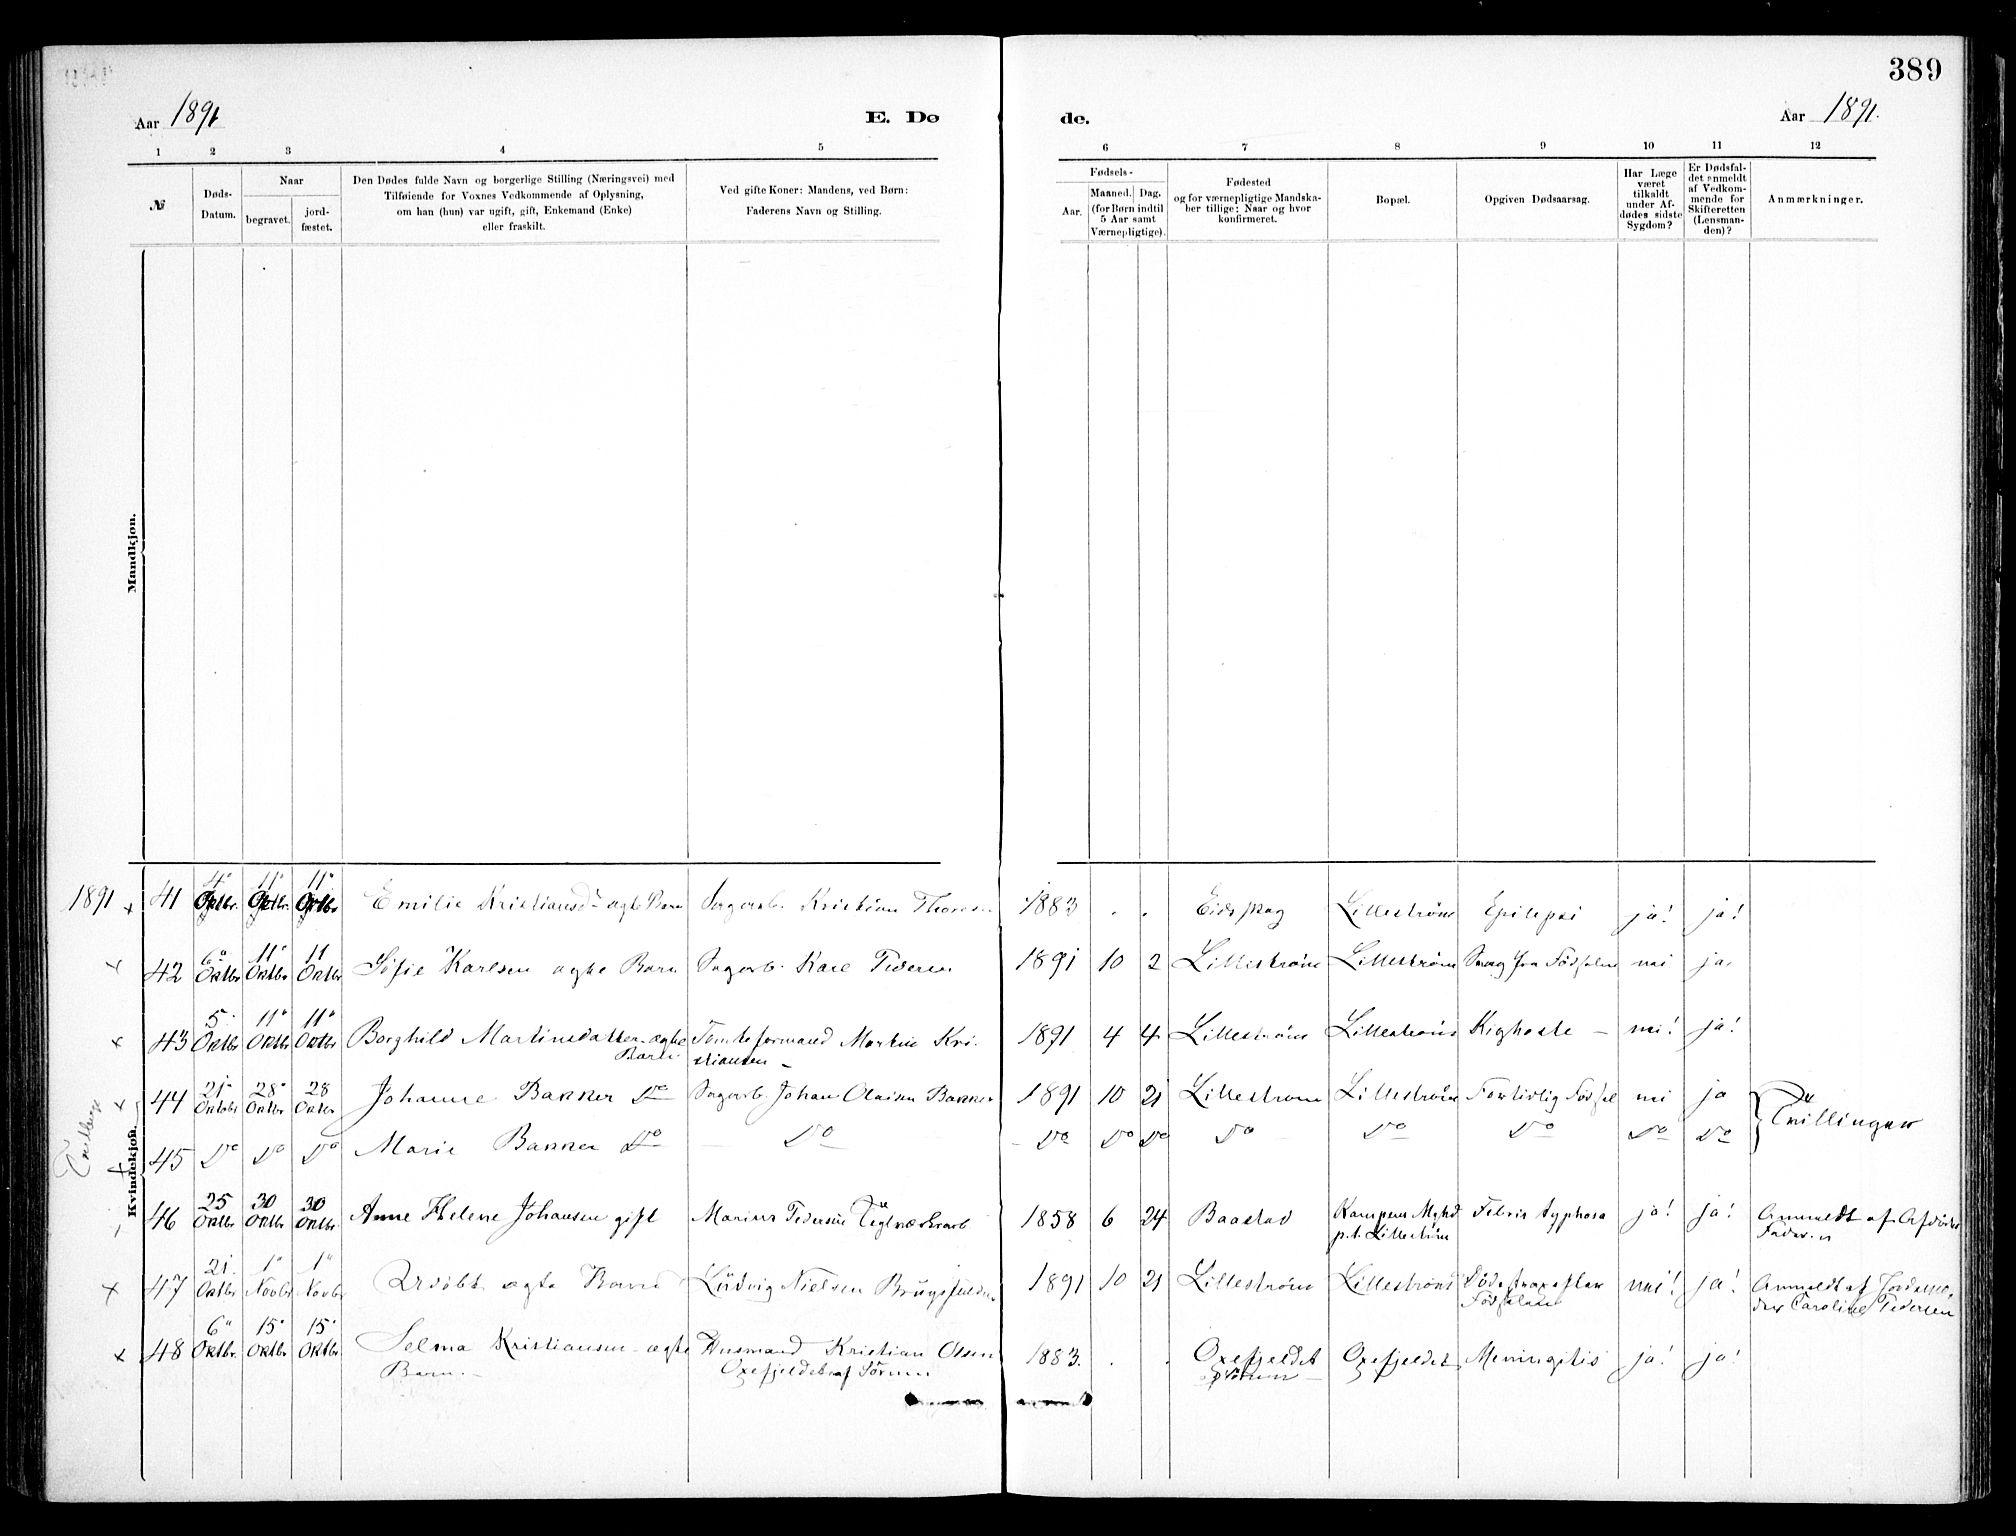 389
Aar 1891
E. Dø
de.
Aar 1891.
1 2 3 4 5 6 7 8 9 10 11 12
№
Døds-
Datum.
Naar
begravet.
jord-
fæstet.
Den Dødes fulde Navn og borgerlige Stilling (Næringsvei) med
Tilføiende for Voxnes Vedkommende af Oplysning,
om han (hun) var ugift, gift, Enkemand (Enke)
eller fraskilt.
Ved gifte Koner: Mandens, ved Børn:
Faderens Navn og Stilling.
Fødsels-
Aar.
Maaned. Dag.
(for Børn indtil
5 Aar samt
Værnepligtige).
Fødested
og for værnepligtige Mandska-
ber tillige: Naar og hvor
konfirmeret.
Bopæl.
Opgiven Dødsaarsag.
Har Læge
været
tilkaldt
under Af-
dødes sidste
Sygdom?
Er Dødsfal-
det anmeldt
af Vedkom-
mende for
Skifteretten
(Lensman-
den)?
Anmærkninger.
Mandkjøn.
Kvindekjøn.
1891 × 41 4' Oktbr. 11' Oktbr. 11' Oktbr Emilie Kristiansd. ægte Barn Sagarb. Kristian Thoresen 1883 . . Eidskog Lillestrøm Epilepsi ja! ja!
× 42 6' Oktbr 11' Oktbr 11 Oktbr Sofie Karlsen ægte Barn Sagarb. Karl Pedersen 1891 10 2 Lillestrøm Lillestrøm Svag fra Fødselen nei ja
× 43 5' Oktbr 11' Oktbr 11' Oktbr Borghild Martinsdatter ægte Tomteformand Martin Kri-
Barn stiansen 1891 4 4 Lillestrøm Lillestrøm Kighoste nei! ja!
× 44 21' Oktbr 28' Oktbr 28 Oktbr Johanne Bakker Do Sagarb. Johan Olaisen Bakker 1891 10 21 Lillestrøm Lillestrøm Fortidlig Fødsel nei ja Tvillinger
× 45 Do Do Do Marie Bakker Do Do Do Do Do Do Do Do Do Do
46 25 Oktbr 30 Oktbr 30 Oktbr Anne Helene Johansen gift Marius Pedersen Teglværksarb 1858 6 24 Baastad Kampens Mghd Febris typhosa ja! ja! Anmeldt af Afdødes
p.t. Lillestrøm Fader
× 47 21. Oktbr 1' Novbr 1' Novbr Udøbt ægte Barn Ludvig Nielsen 1891 10 21 Lillestrøm Lillestrøm Døde strax efter nei! ja! Anmeldt af Jordemo-
Fødselen der Caroline Pedersen
× 48 6' Oktbr. 15' Oktbr 15' Oktbr Selma Kristiansen ægte Husmand Kristian Olsen 1883. . . Oxefjeldet Oxefjeldet Meningitis ja! ja!
Barn. Oxefjeldet af Sørum Sørum